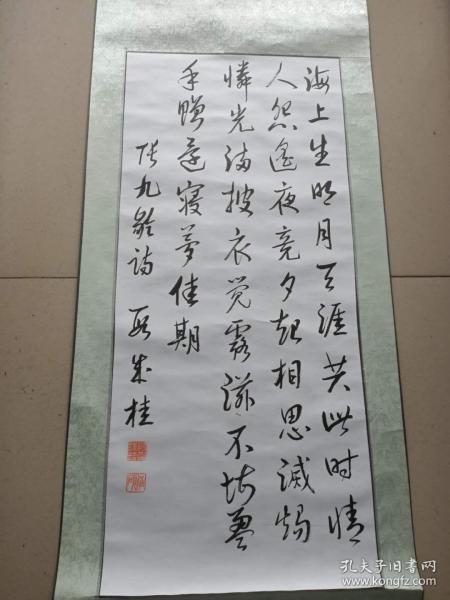 海上生明月天涯共此时情
人怨遥夜竟夕起相思滅烛
憐光满披衣觉露滋不堪盈
手赠还寝梦佳期
张九龄诗 段成桂
孔夫子旧书网
www.kongfz.com